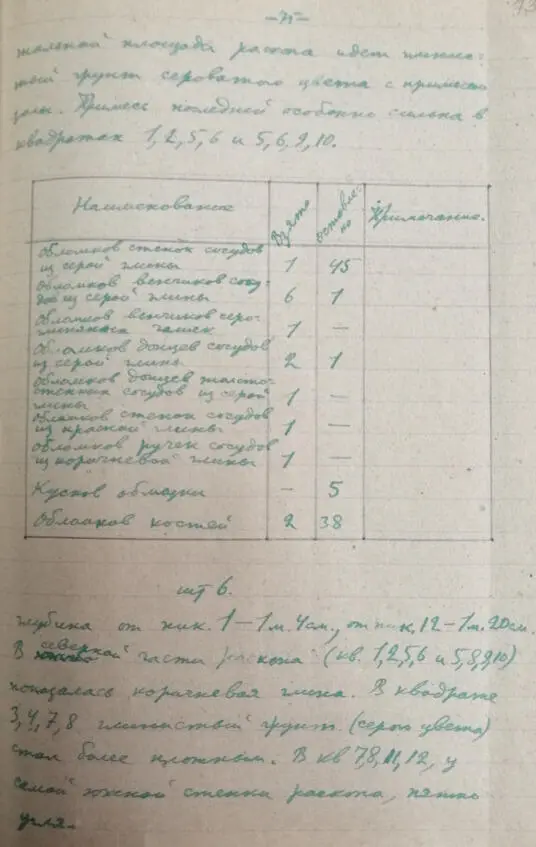 -75-
тальной площади раскопа идет глинис-
тый грунт сероватого цвета с примесью
золы. Примесь последней особенно сильна в
квадратах 1,2,5,6 и 5,6,9,10.
Наименование Взято оставле-но Примечание.
обломков стенок сосудов
из серой глины 1 45
обломков венчиков сосу-
дов из серой глины 6 1
обломков венчиков серо-
глиняных чашек 1 —
Обломков донцев сосудов
из серой глины 2 1
обломков донцев толсто-
стенных сосудов из серой
глины 1 —
обломков стенок сосудов
из красной глины 1 —
обломков ручек сосудов
из коричневой глины 1 —
Кусков обмазки — 5
Обломков костей 2 38
шт 6.
глубина от пик. 1 – 1 м. 4 см., от пик. 12 – 1 м. 20 см.
В северной части раскопа (кв. 1,2,5,6 и 5,8,9,10)
показалась коричневая глина. В квадрате
3,4,7,8 глинистый грунт (серого цвета)
стал более плотным. В кв 7,8,11,12, у
самой южной стенки раскопа, пятно
угля.